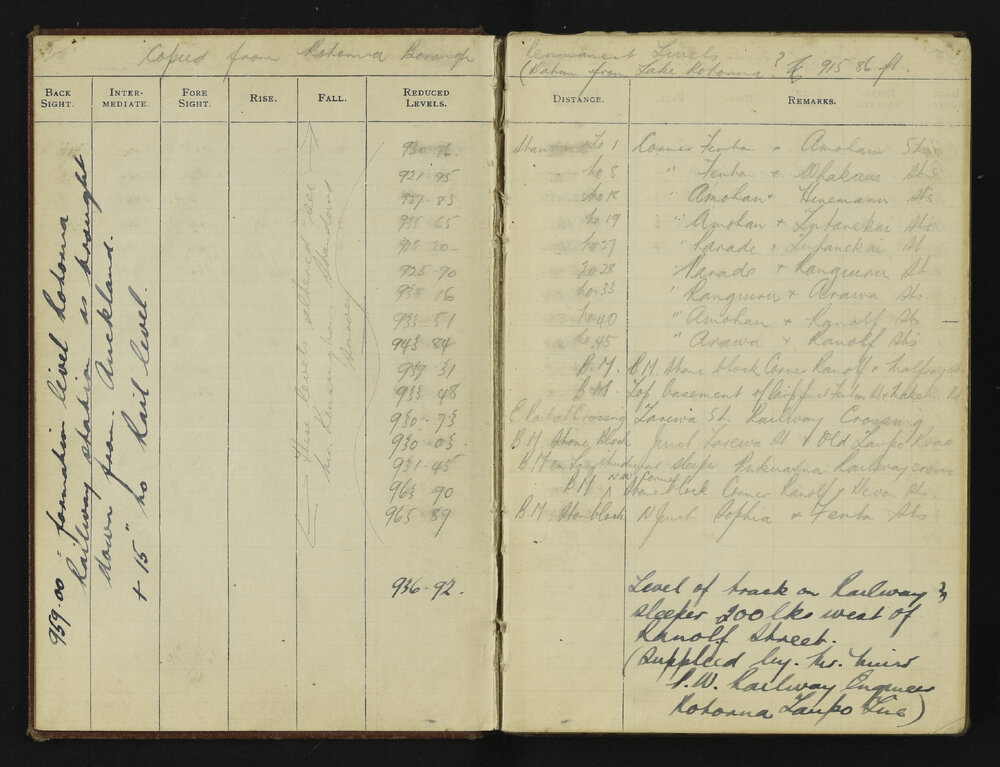 Copied from Rotorua Borough
Permanent Levels
(Datum from Lake Rotorua ? 915 86 ft.
BACK SIGHT.
INTER-MEDIATE.
FORE SIGHT.
RISE.
FALL.
REDUCED LEVELS.
DISTANCE.
REMARKS.
930 76 Standard No 1 Corner Fenton + Amohau Sts
921 95 No 8 " Fenton + Whakaue Sts
937 83 No 18 " Amohau + Hinemaru Sts
935 65 No 19 " Amohau + Tutanekai Sts
918 20 No 27 " Parade + Tutanekai St
925 90 No 28 " Parade + Ranguru St
938 16 No 33 " Ranguru + Arawa Sts
935 51 No 40 " Amohau + Ranolf Sts
943 84 No 45 " Arawa + Ranolf Sts
939 31 B.M. B.M. Stone block Corner Ranolf +
933 48 B.M Top basement of
930 - 73 Tarewa St. Railway Crossing
930 03 B.M. Stone Block Junct Tarewa Rd + Old Taupo Road
931 - 45 B.M on Longitudinal sleeper Pukuatua Railway
963 90 B.M N.W. Corner Stone block Corner Ranolf + Devon Sts
965 89 B.M. Stone block N Junct Sophia + Fenton Sts
These levels altered see
Mr Kensington Standard
Survey
959.00 formation level Rotorua
Railway station as brought
down from Auckland.
+ 15" to Rail level.
936 - 92. Level of track on Railway
sleeper 200 lks west of
Ranolf Street.
(Supplied by. Mr.
P.W. Railway Engineer
Rotorua Taupo Line)